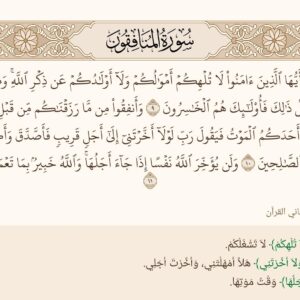 سُورَةُ المُنَافِقُونَ
أَيُّهَا ٱلَّذِينَ ءَامَنُوا۟ لَا تُلْهِكُمْ أَمْوَٰلُكُمْ وَلَآ أَوْلَٰدُكُمْ عَن ذِكْرِ ٱللَّهِ ۚ
ذَٰلِكَ فَأُو۟لَٰٓئِكَ هُمُ ٱلْخَٰسِرُونَ ٩ وَأَنفِقُوا۟ مِن مَّا رَزَقْنَٰكُم مِّن قَبْلِ
أَحَدَكُمُ ٱلْمَوْتُ فَيَقُولَ رَبِّ لَوْلَآ أَخَّرْتَنِىٓ إِلَىٰٓ أَجَلٍ قَرِيبٍ فَأَصَّدَّقَ
ٱلصَّٰلِحِينَ ١٠ وَلَن يُؤَخِّرَ ٱللَّهُ نَفْسًا إِذَا جَآءَ أَجَلُهَا ۚ وَٱللَّهُ خَبِيرٌۢ بِمَا
القرآن
تُلْهِكُمْ﴾: لَا تَشْغَلْكُمْ.
أَخَّرْتَنِي﴾: هَلَّا أَمْهَلْتَنِي، وَأَخَّرْتَ أَجَلِي.
وَقْتُ مَوْتِهَا.